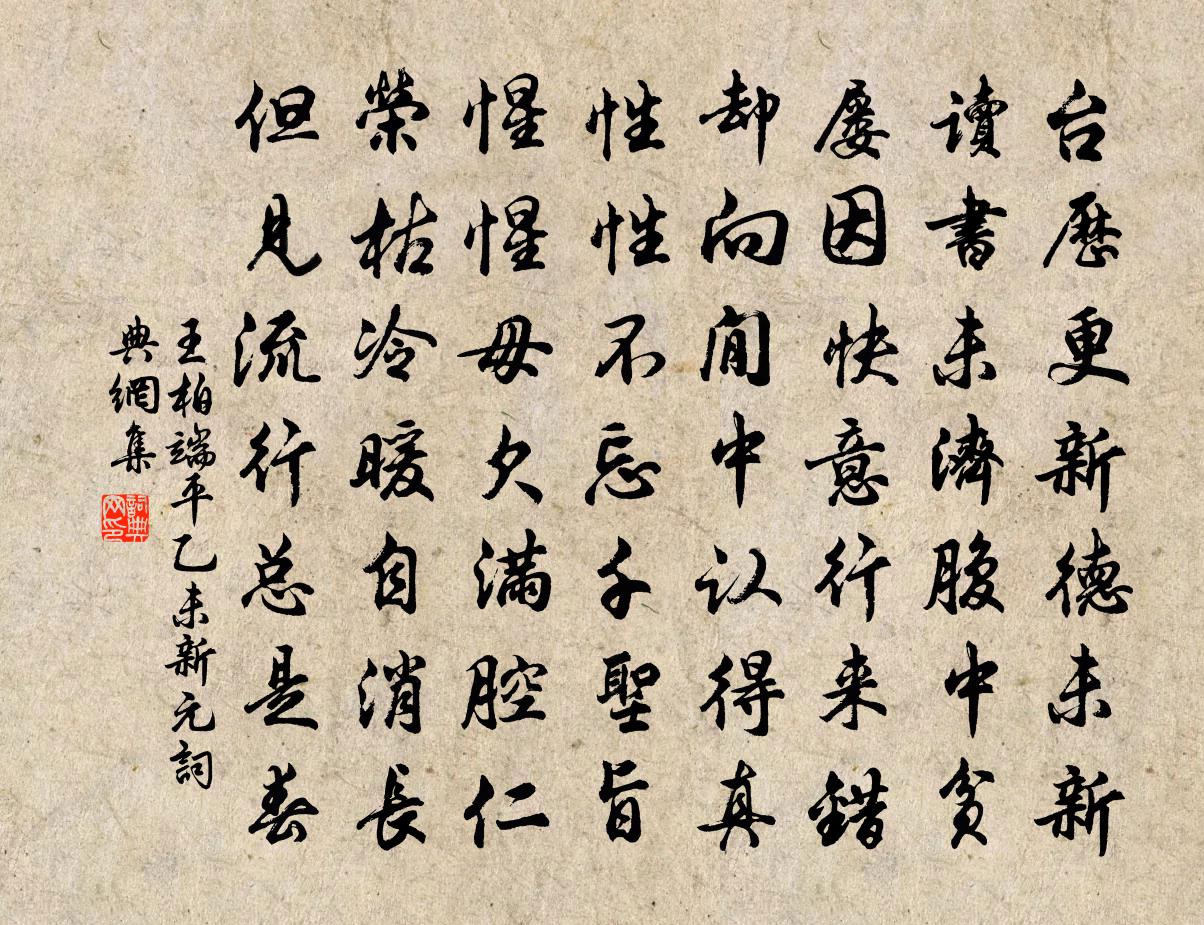 台歷更新德未新
讀書未濟腹中貧
屡因快意行来錯
却向閒中认得真
性性不忘千聖旨
惺惺毋欠滿腔仁
榮枯冷暖自消長
但見流行总是春
王柏端平乙未新元詞
典網集
詞典
网印